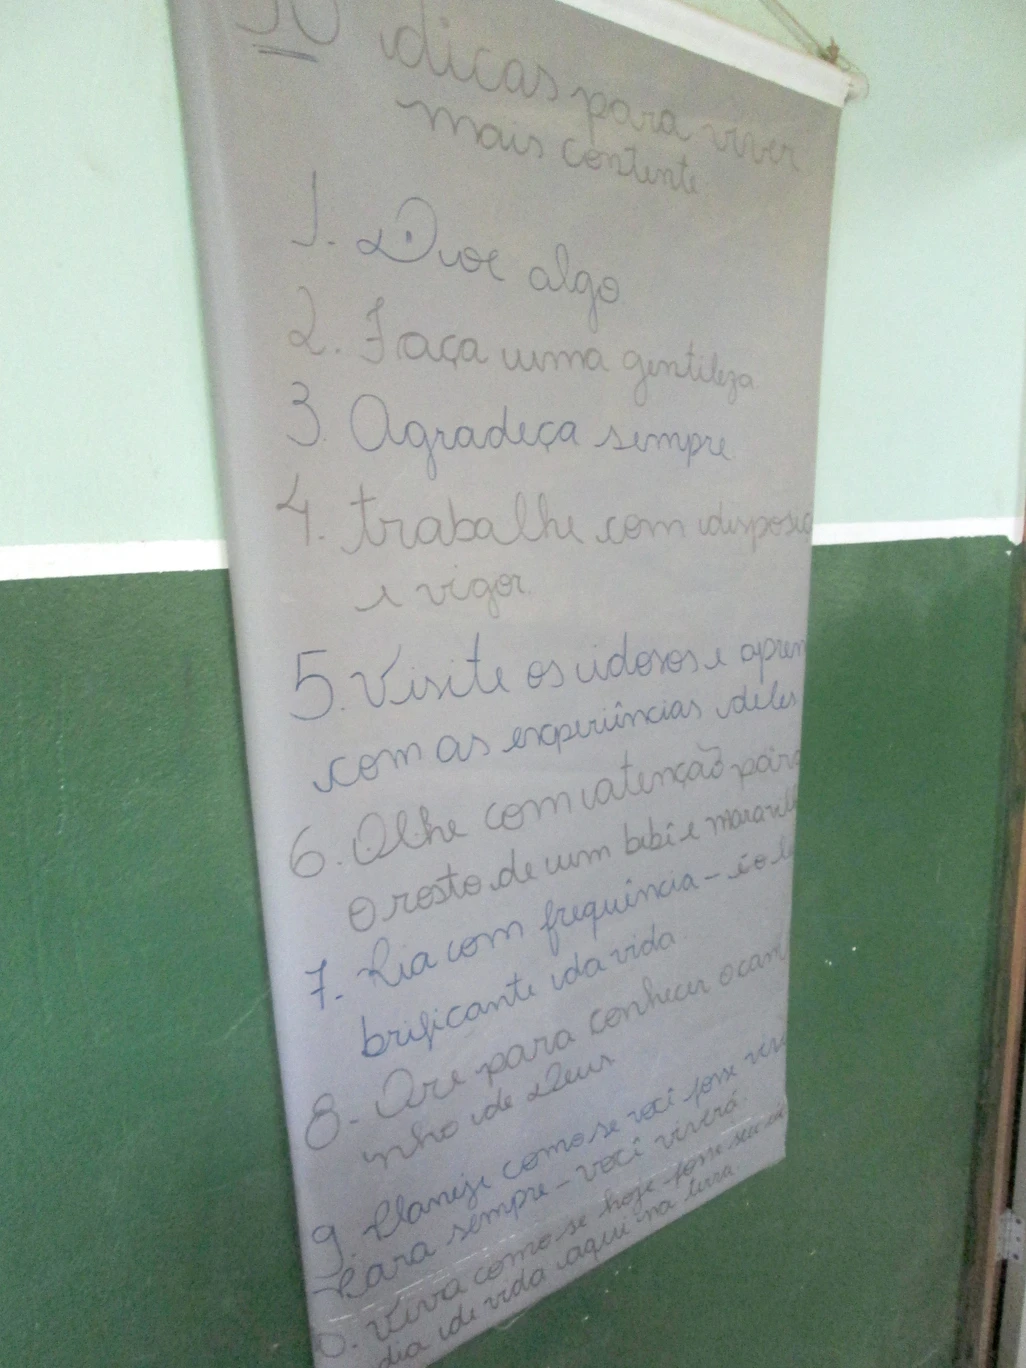 10 dicas para viver
mais contente.
1. Doe algo
2. Faça uma gentileza
3. Agradeça sempre.
4. trabalhe com disposiç
e vigor.
5. Visite os idosos e apren
com as experiências deles
6. Olhe com atenção para
o rosto de um bebê e maravilh
7. Ria com frequência - é o l
brificante da vida.
8. Ore para conhecer o cami
nho de Deus.
9. Planeje como se você fosse vive
para sempre - você viverá.
0. Viva como se hoje fosse seu úl
dia de vida aqui na terra.